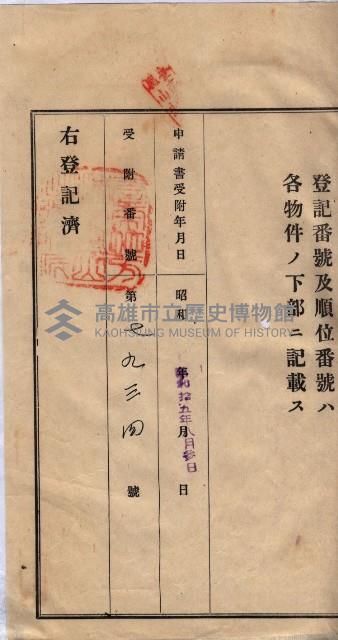 登記番號及順位番號ハ
各物件ノ下部ニ記載ス
申請書受附年月日
昭和 年 月 日
拾五年八月参日
受附番號
第 九三四 號
右登記濟
高雄市立歷史博物館
KAOHSIUNG MUSEUM OF HISTORY